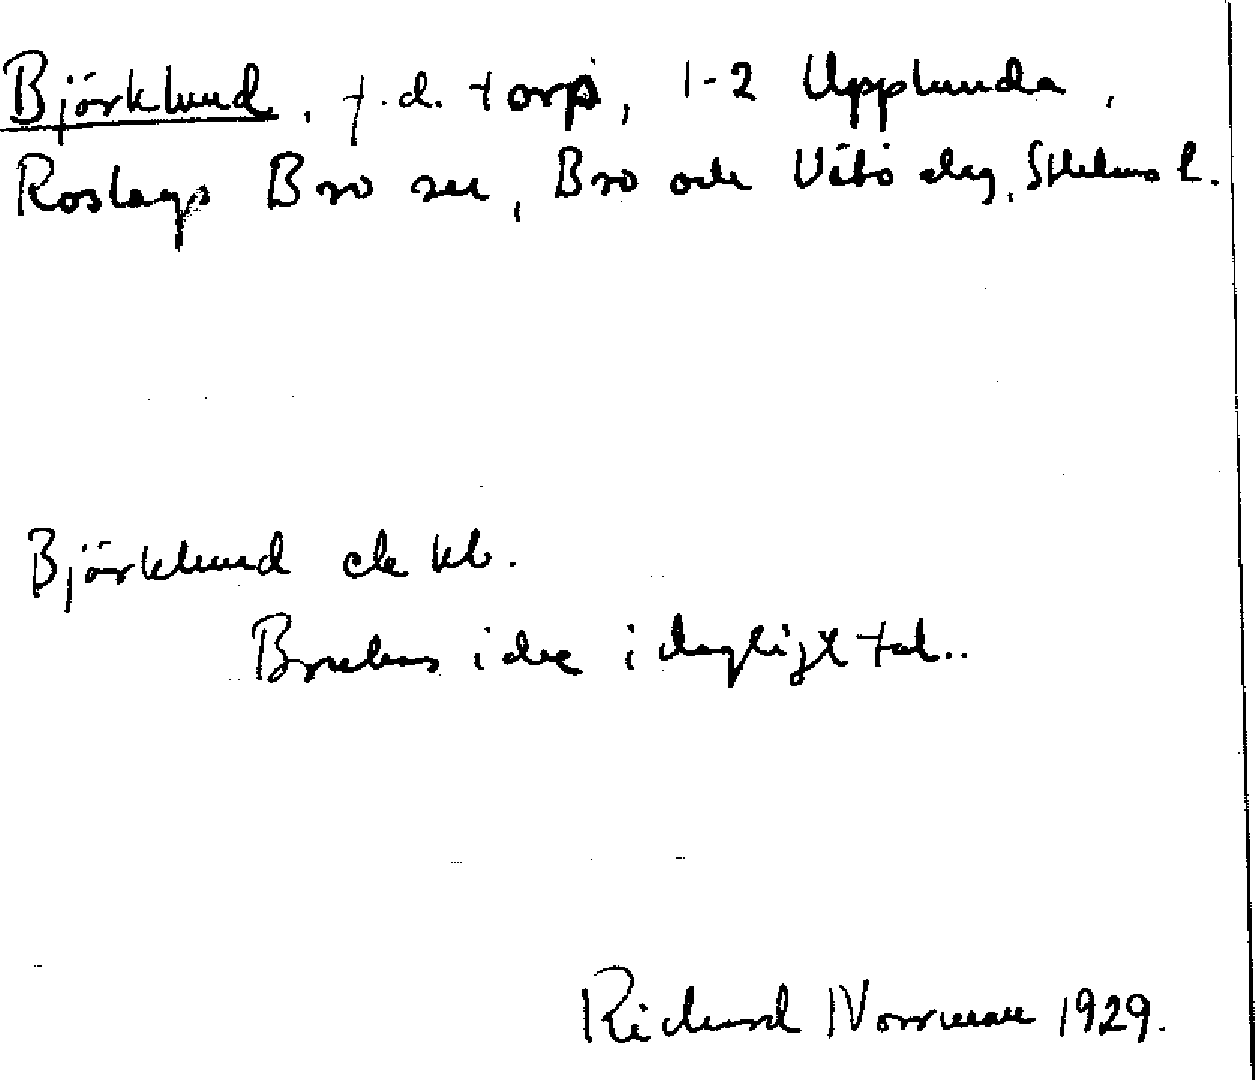 Björklund, f.d. torp, 1-2 Upplunda,
Roslags Bro sn, Bro och Vätö skg, Sthlms l.
Björklund ek kb.
i dagligt tal..
Richard Norrman 1929.